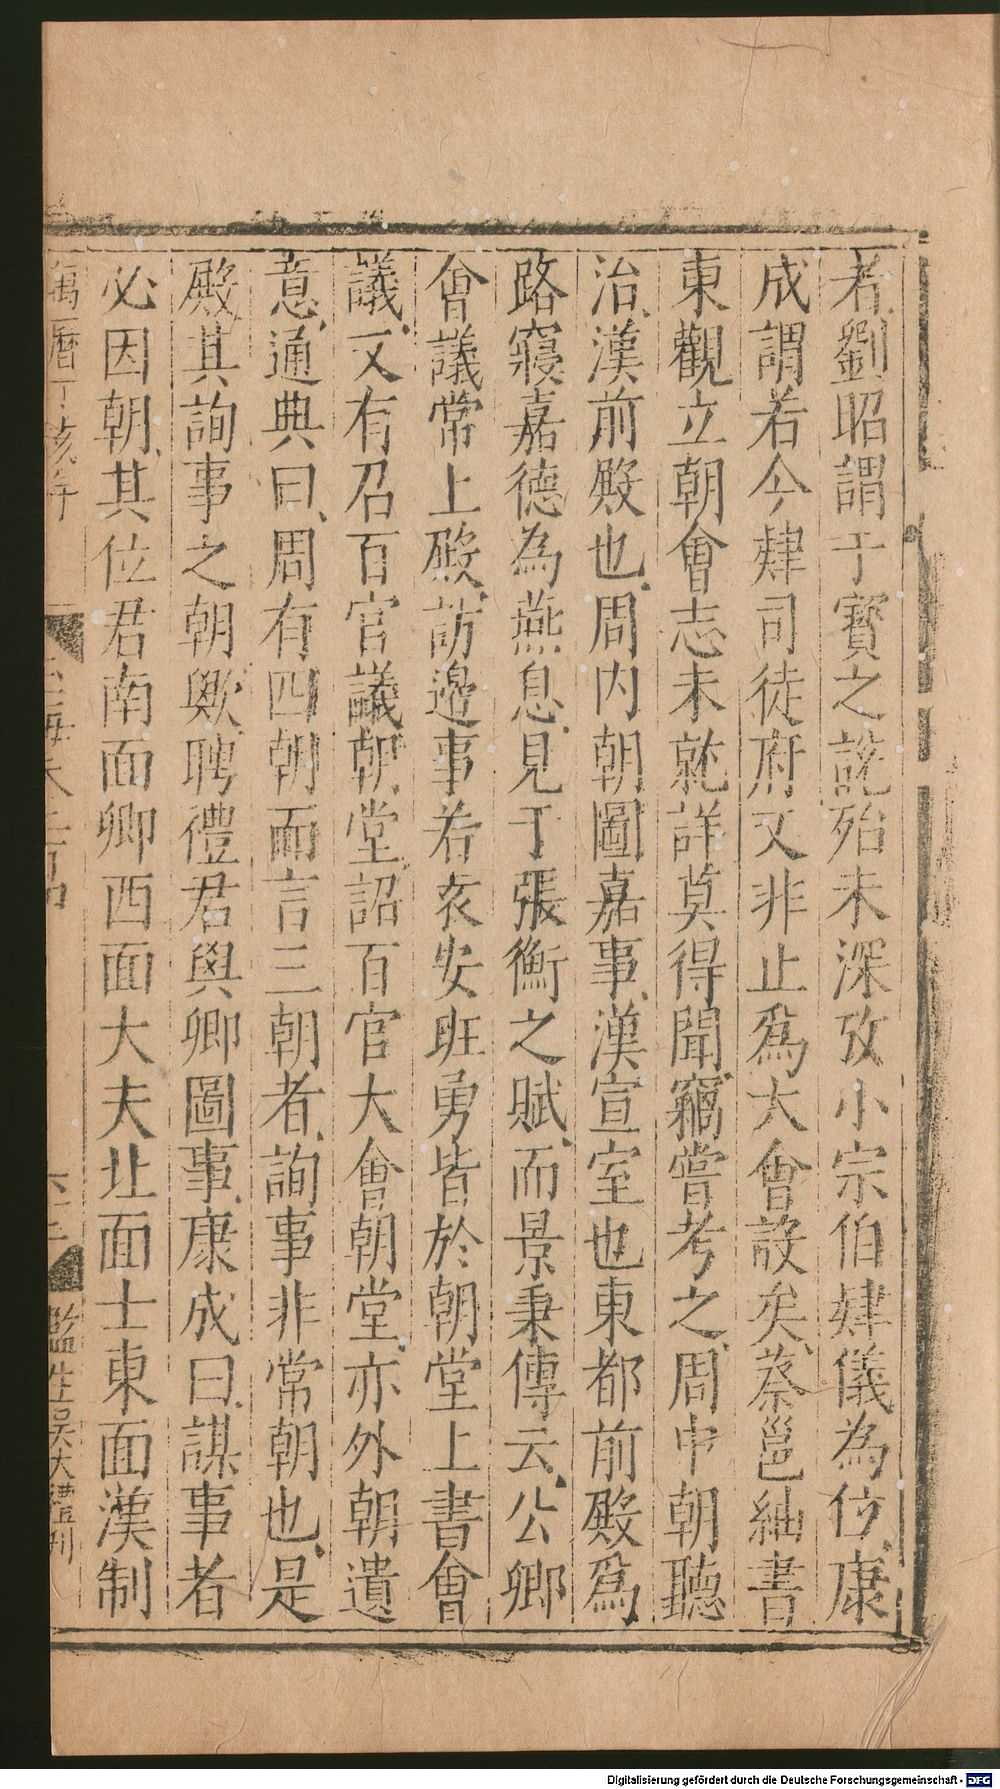 者劉昭謂干寳之說殆未深攷小宗伯肄儀為位康
成謂若今肄司徒府又非止爲大會設矣蔡邕紬書
東觀立朝會志未就詳莫得聞竊嘗考之周中朝聽
治漢前殿也周内朝圖嘉事漢宣室也東都前殿爲
路寢嘉德為燕息見于張衡之賦而景秉傳云公卿
會議常上殿訪邉事若袁安班勇皆於朝堂上書會
議又有召百官議朝堂詔百官大會朝堂亦外朝遺
意通典曰周有四朝而言三朝者詢事非常朝也是
殿其詢事之朝歟聘禮君與卿圖事康成曰謀事者
必因朝其位君南面卿西面大夫北面士東面漢制
萬曆丁亥年
玉海
監生吳大禮刊
Digitalisierung gefördert durch die Deutsche Forschungsgemeinschaft - DFG